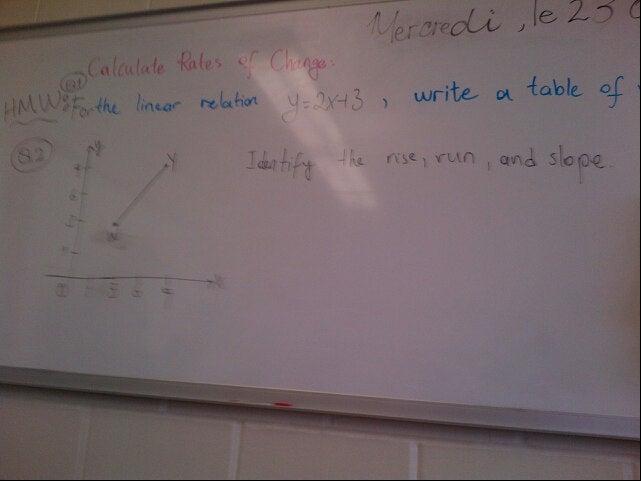 Mercredi, le 23
Calculate Rates of Change:
HMWK Q1 For the linear relation y=2x+3, write a table of
Q2 Identify the rise, run, and slope.
y
y
x